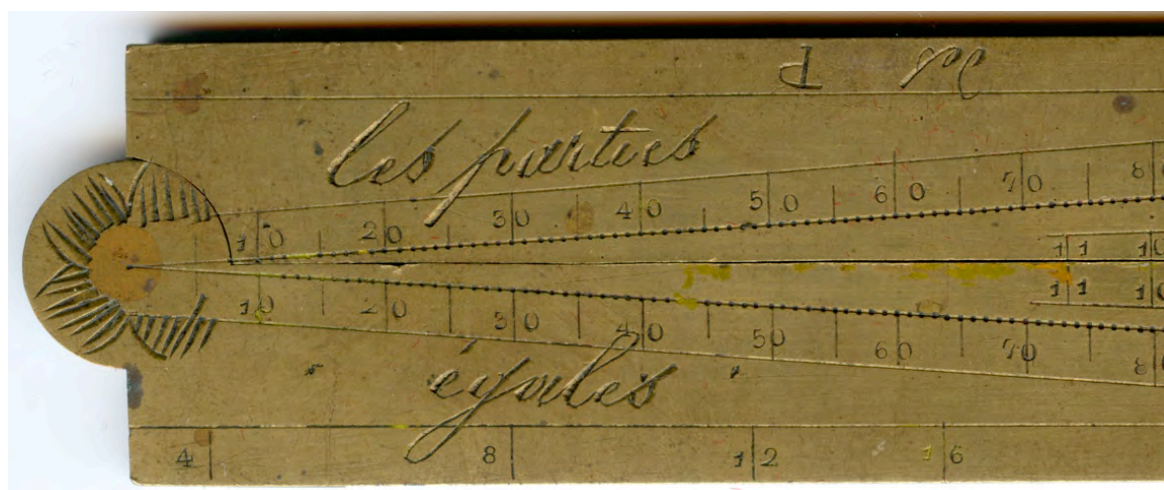 P
les parties
10 20 30 40 50 60 70 80
11 10
11 10
10 20 30 40 50 60 70 80
égales
4 8 12 16